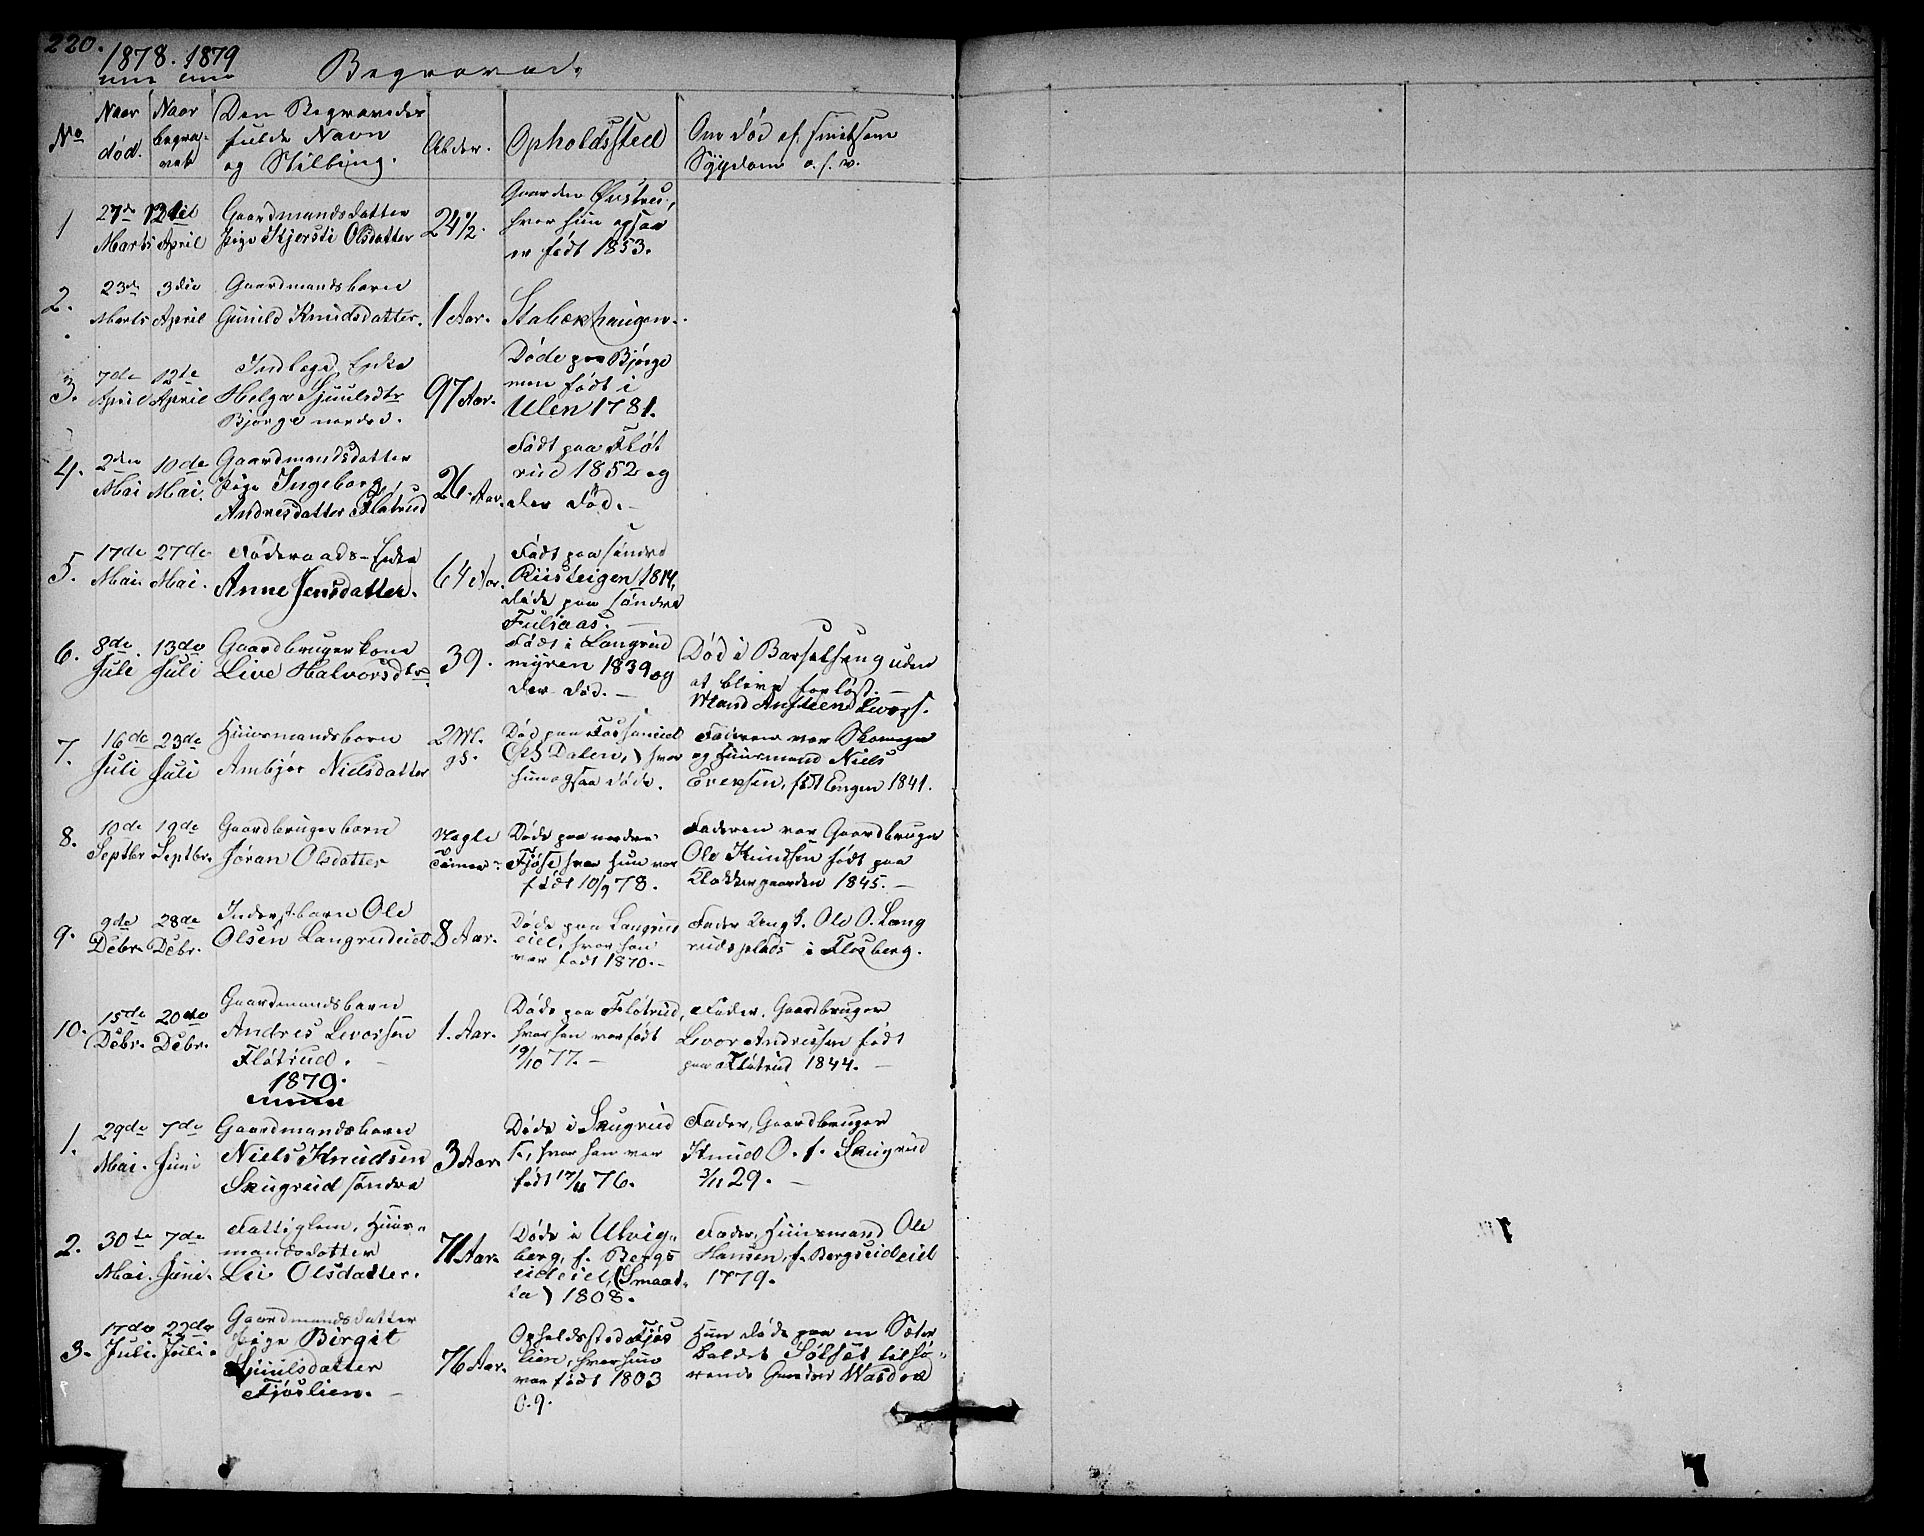 220.
1878. 1879
Begravede
No
Naar død.
Naar begravet
Den Begravedes fulde Navn og Stilling.
Alder.
Opholdssted
Om død af smitsom Sygdom o. s. v.
1
27de Marts
April
Gaardmandsdatter
Pige Kjersti Olsdatter
24½.
Gaarden Øvstrud,
hvor hun ogsaa
er født 1853.
2.
23de Marts
3die April
Gaardmandsbarn
Gunild Knudsdatter.
1 Aar.
Stabækhaugen.
3.
7de April
12te April
Indlagd Enke
Helga Sjuulsdtr
Bjørge nordre.
97 Aar.
Døde paa Bjørge
men født i
Ulen 1781.
4.
2den Mai
10de Mai.
Gaardmandsdatter
Pige Ingeborg
Andresdatter Fløtrud
26. Aar.
Født paa Fløt
rud 1852 og
der død.
5.
17de Mai.
27de Mai.
Føderaads-Enke
Anne Jensdatter.
64 Aar.
Født paa søndre
Riisteigen 1814,
døde paa søndre
Fulsaas.
6.
8de Juli
13de Juli
Gaardbrugerkone
Live Halvorsdtr.
39.
Født i Langrud
myren 1839 og
der død.
Død i Barselseng uden
at blive forløst.
Mand Anfteen Livors.
7.
16de Juli
23de Juli
Huusmandsbarn
Ambjør Nielsdatter
2 M. gl.
Død paa Fosseneiet
Dalen, hvor
hun ogsaa døde.
Faderen var Skomager
og Huusmand Niels
Evensen, født Engen 1841.
8.
10de Septbr
19de Septbr.
Gaardbrugerbarn
Jøran Olsdatter
Nogle Timer
Døde paa nordre
Fjøse, hvor hun var
født 10/9 78.
Faderen var Gaardbruger
Ole Knudsen født paa
Klokkergaarden 1845.
9.
9de Debr.
28de Debr.
Inderstbarn Ole
Olsen Langrudeiet.
8 Aar.
Døde paa Langrud
eiet, hvor han
var født 1870.
Fader Ungk. Ole O. Lang
rudsplads i Flesberg.
10.
15de Debr.
20de Debr.
Gaardmandsbarn
Andres Levorsen
Fløtrud.
1. Aar.
Døde paa Fløtrud,
hvor han var født
19/10 77.
Fader, Gaardbruger
Levor Andressen født
paa Fløtrud 1844.
1879.
1.
29de Mai.
7de Juni
Gaardmandsbarn
Niels Knudsen
Skugrud søndre
3 Aar.
Døde i Skugrud
s., hvor han var
født 17/11 76.
Fader, Gaardbruger
Knud O. f. Skugrud
3/11 29.
2.
30te Mai.
7de Juni.
Fattiglem, Huus-
mandsdatter
Liv Olsdatter.
71 Aar.
Døde i Ulvig-
berg, f. Bergs
eideiet, (Smaat-
ta) 1808.
Fader, Huusmand Ole
Hansen, f. Bergseideiet
1779.
3.
17de Juli.
22de Juli.
Gaardmandsdatter
Pige Birgit
Sjuulsdatter
Fjøslien.
76 Aar.
Opholdssted Fjøs
lien, hvor hun
var født 1803
Hun døde paa en Sæter
kaldet Sølset tilhø-
rende Gaarden Wasdra